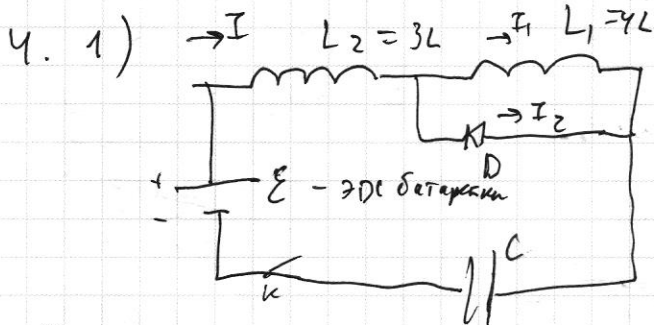 4. 1) → I L₂ = 3L → I₁ L₁ = 4L
→ I₂
D
+ ℰ - ЭДС батарейки
-
C
K